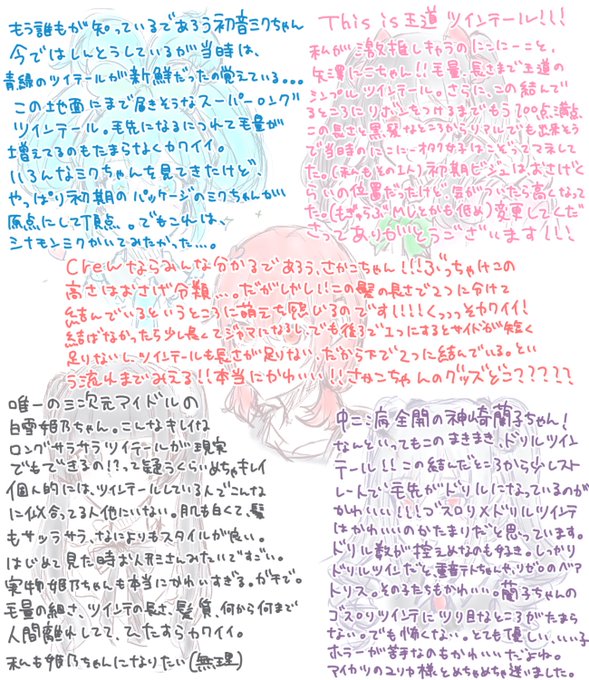 もう誰もが知っているであろう初音ミクちゃん
今ではしんとうしているが当時は、
青緑のツイテールが新鮮だったの覚えている...
この地面にまで届きそうなスーパーロング
ツインテール。毛先になるにつれて毛量が
増えてるのもたまらなくカワイイ。
いろんなミクちゃんを見てきたけど、
やっぱり初期のパッケージのミクちゃんが
原点にして頂点。でもこれは、
シナモンミクかいてみたかった...。
This is 王道ツインテール!!!
私が激推しキャラのにこにーこと、
矢澤にこちゃん!!毛量、長さまで王道の
シンプルツインテール。さらに、この結んで
るところにリボンをつけるまでもう200点満点、
この長さと黒髪なところからリアルでも出来そう
で当時のにこにーオタク女子はこぞってマネして
た。(私もその1人)初期ビジュはおさげく
らいの位置だったけど、気がついたら高くなって
た。(もぎゅらぶMVとかも低め)変更してくだ
さってありがとうございます!!!
Crewならみんな分かるであろう、さかこちゃん!!!ぶっちゃけこの
高さはおさげ分類...。だがしかし!!この髪の長さで2つに分けて
結んでいるというところに萌えを感じるのです!!!!くっっっそカワイイ!
結ばなかったら少し長くてジャマになるし、でも後ろで1つにするとサイドが短く
足りないし、ツインテールも長さが足りない、だから下で2つに結んでいる。とい
う流れまでみえる!!本当にかわいい!!さかこちゃんのグッズどこ?????
唯一の三次元アイドルの
白雪姫乃ちゃん。こんなキレイな
ロングサラサラツイテールが現実
でもできるの!?って疑うくらいめちゃキレイ
個人的には、ツインテールしている人でこんな
に似合ってる人他にいない。肌も白くて、髪
もサッラサラ、なによりもスタイルが良い。
はじめて見た時お人形さんみたいですごい。
実物姫乃ちゃんも本当にかわいすぎる。ガチで。
毛量の細さ、ツインテの長さ、髪質、何から何まで
人間離れしてて、ひたすらカワイイ。
私も姫乃ちゃんになりたい(無理)
中二病全開の神崎蘭子ちゃん!
なんといってもこのまきまき、ドリルツイン
テール!!この結んだところから少しスト
レートで毛先がドリルになっているのが
かわいい!!!ゴスロリ×ドリルツインテ
はかわいいのかたまりだと思っています。
ドリル数が控えめなのも好き。しっかり
ドリルツインだと、重音テトちゃんや、リゼロのベア
トリス。その子たちもかわいい。蘭子ちゃんの
ゴスロリツインテにツリ目なところがたまら
ない。でも怖くない。とても優しい、いい子
ホラーが苦手なのもかわいいだよね。
アイカツのユリカ様とめちゃめちゃ迷いました。